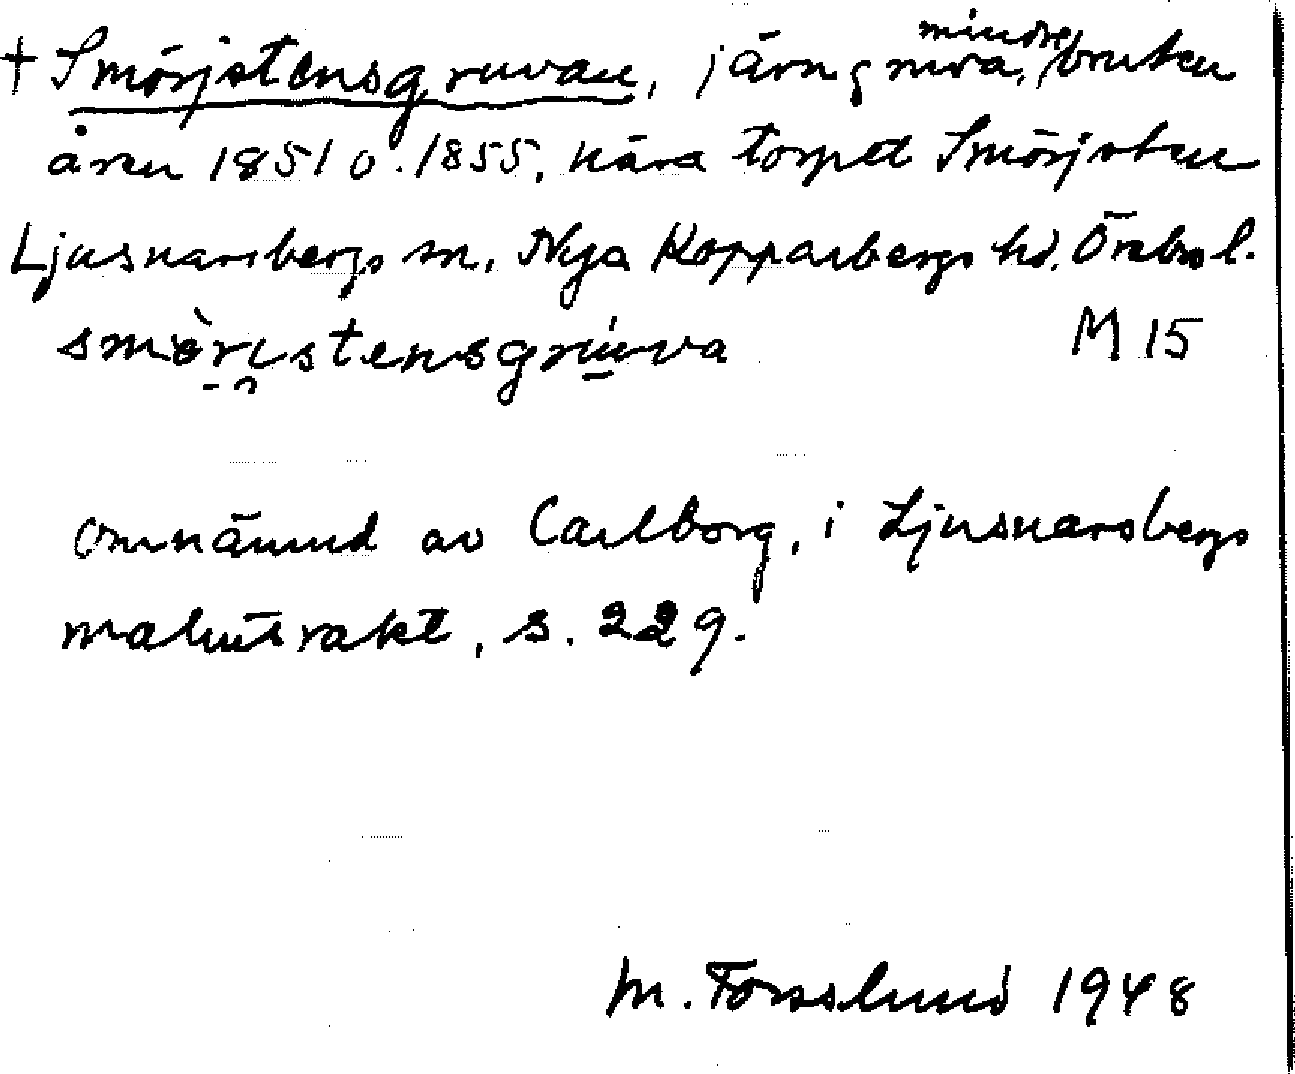 † Smörjstensgruvan, järngruva, mindre, bruten
åren 1851 o. 1855, nära torpet Smörjsten
Ljusnarsbergs sn, Nya Kopparbergs hd. Örebro l.
smöristensgruva M 15
omnämnd av Carlborg, i Ljusnarsbergs
malmtrakt, s. 229.
M. Forsslund 1948